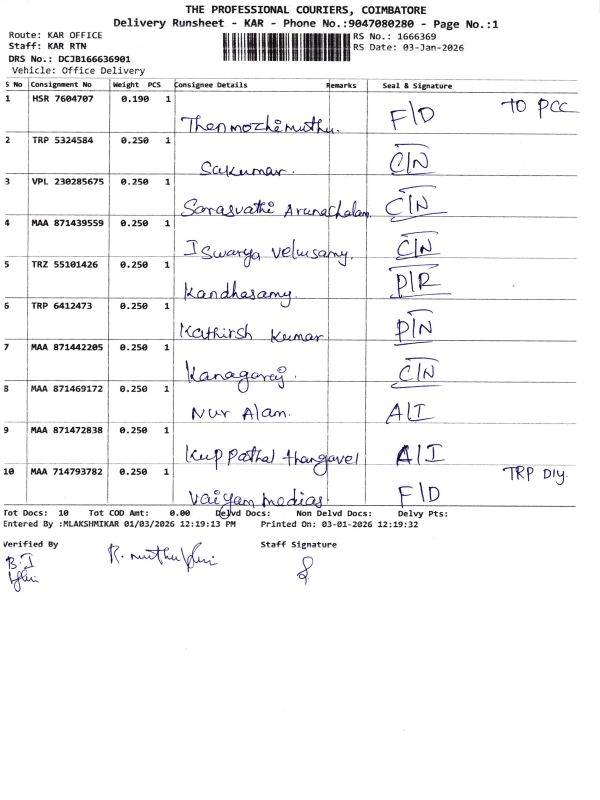 THE PROFESSIONAL COURIERS, COIMBATORE
Delivery Runsheet - KAR - Phone No.:9047080280 - Page No.:1
Route: KAR OFFICE RS No.: 1666369
Staff: KAR RTN RS Date: 03-Jan-2026
DRS No.: DCJB166636901
Vehicle: Office Delivery
S No Consignment No Weight PCS Consignee Details Remarks Seal & Signature
1 HSR 7604707 0.190 1 Thenmozhi muthu. F/D TO PCC
2 TRP 5324584 0.250 1 Sakumar. C/N
3 VPL 230285675 0.250 1 Sarasvathi Arunachalam C/N
4 MAA 871439559 0.250 1 Iswarya velusamy. C/N
5 TRZ 55101426 0.250 1 Kandhasamy. P/R
6 TRP 6412473 0.250 1 Kathirsh Kumar P/N
7 MAA 871442205 0.250 1 Kanagaraj. C/N
8 MAA 871469172 0.250 1 Nur Alam. A/I
9 MAA 871472838 0.250 1 Kuppathal thangavel A/I
10 MAA 714793782 0.250 1 Vaiyam medias. F/D TRP Dly.
Tot Docs: 10 Tot COD Amt: 0.00 Delvd Docs: Non Delvd Docs: Delvy Pts:
Entered By :MLAKSHMIKAR 01/03/2026 12:19:13 PM Printed On: 03-01-2026 12:19:32
Verified By Staff Signature
B. I